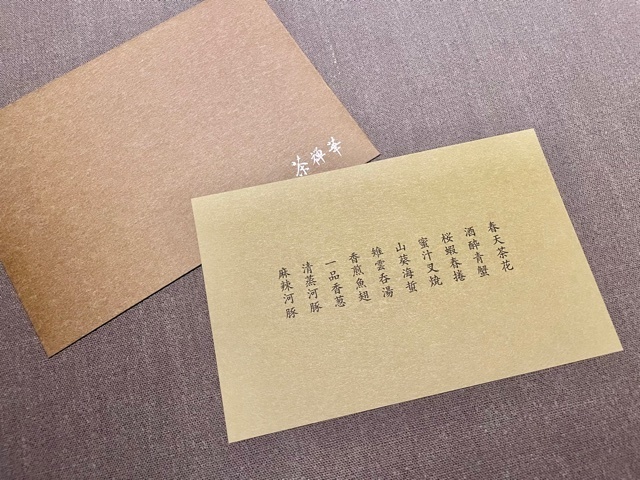 茶禅華
春天茶花
酒醉青蟹
桜蝦春捲
蜜汁叉焼
山葵海蜇
雉雲呑湯
香煎魚翅
一品香葱
清蒸河豚
麻辣河豚